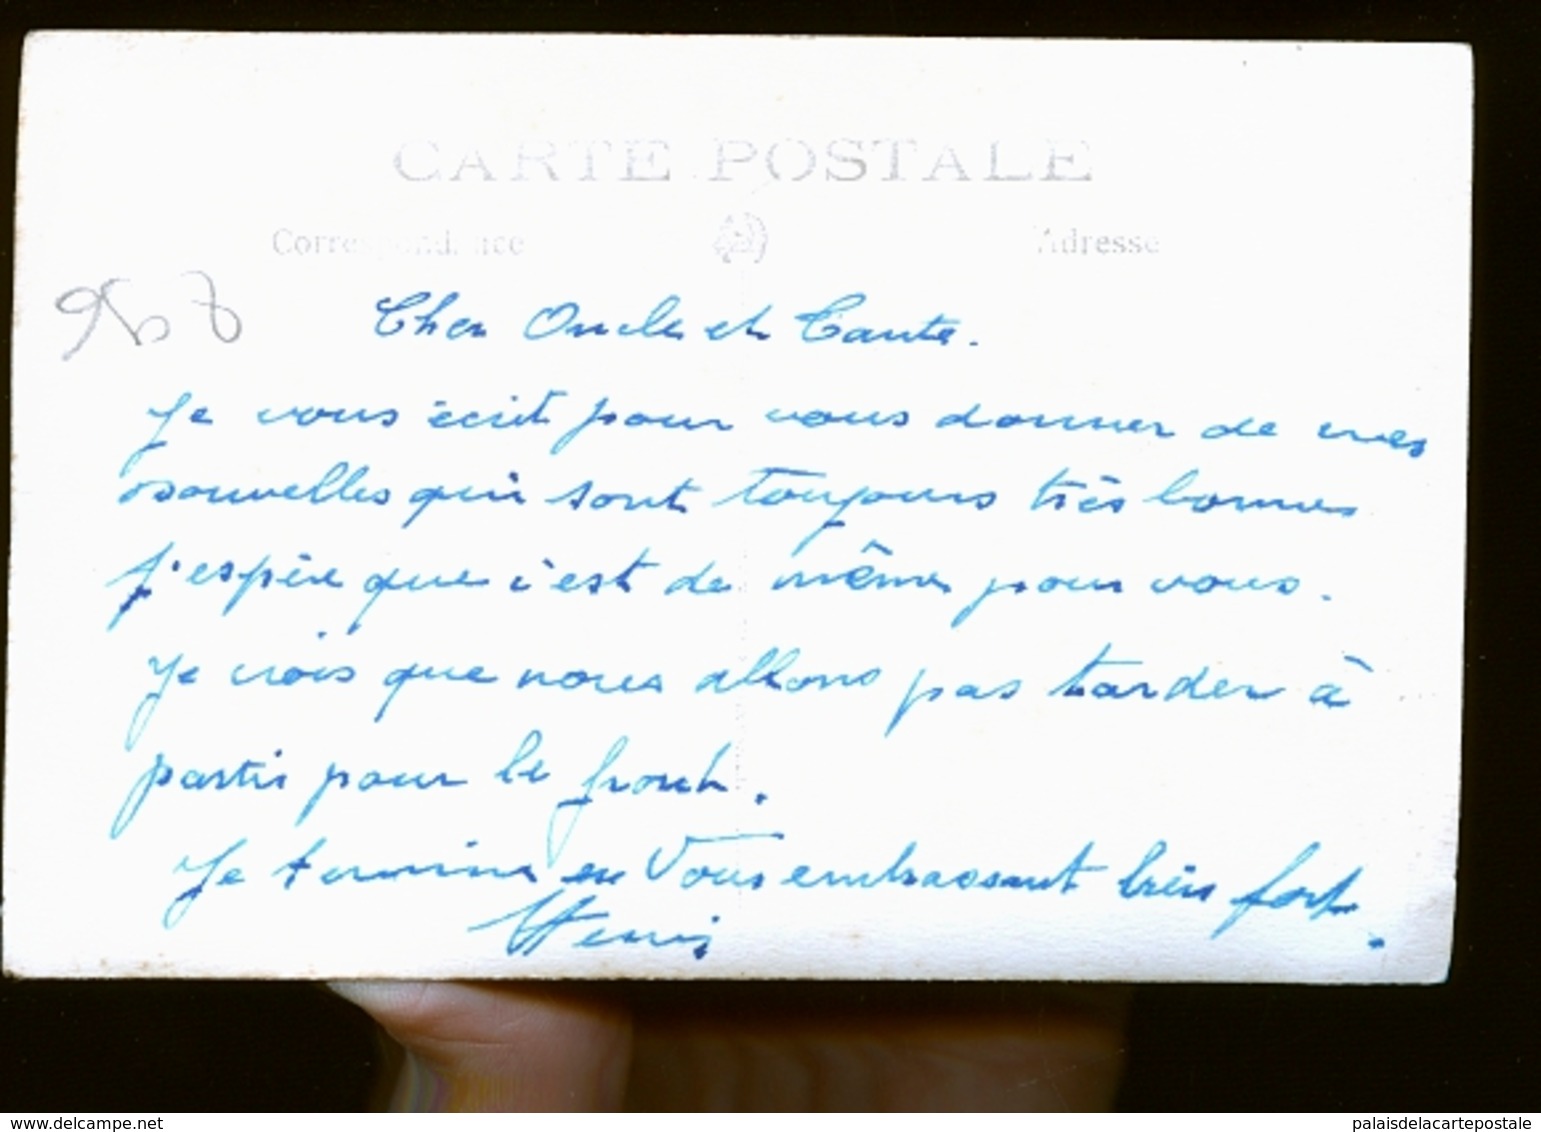 CARTE POSTALE
Correspondance Adresse
Cher Oncle et Tante.
Je vous écrit pour vous donner de mes
nouvelles qui sont toujours très bonnes
j'espère que c'est de même pour vous.
Je crois que nous allons pas tarder à
partir pour le front.
Je termine en vous embrassant bien fort.
Henri
www.delcampe.net
palaisdelacartepostale